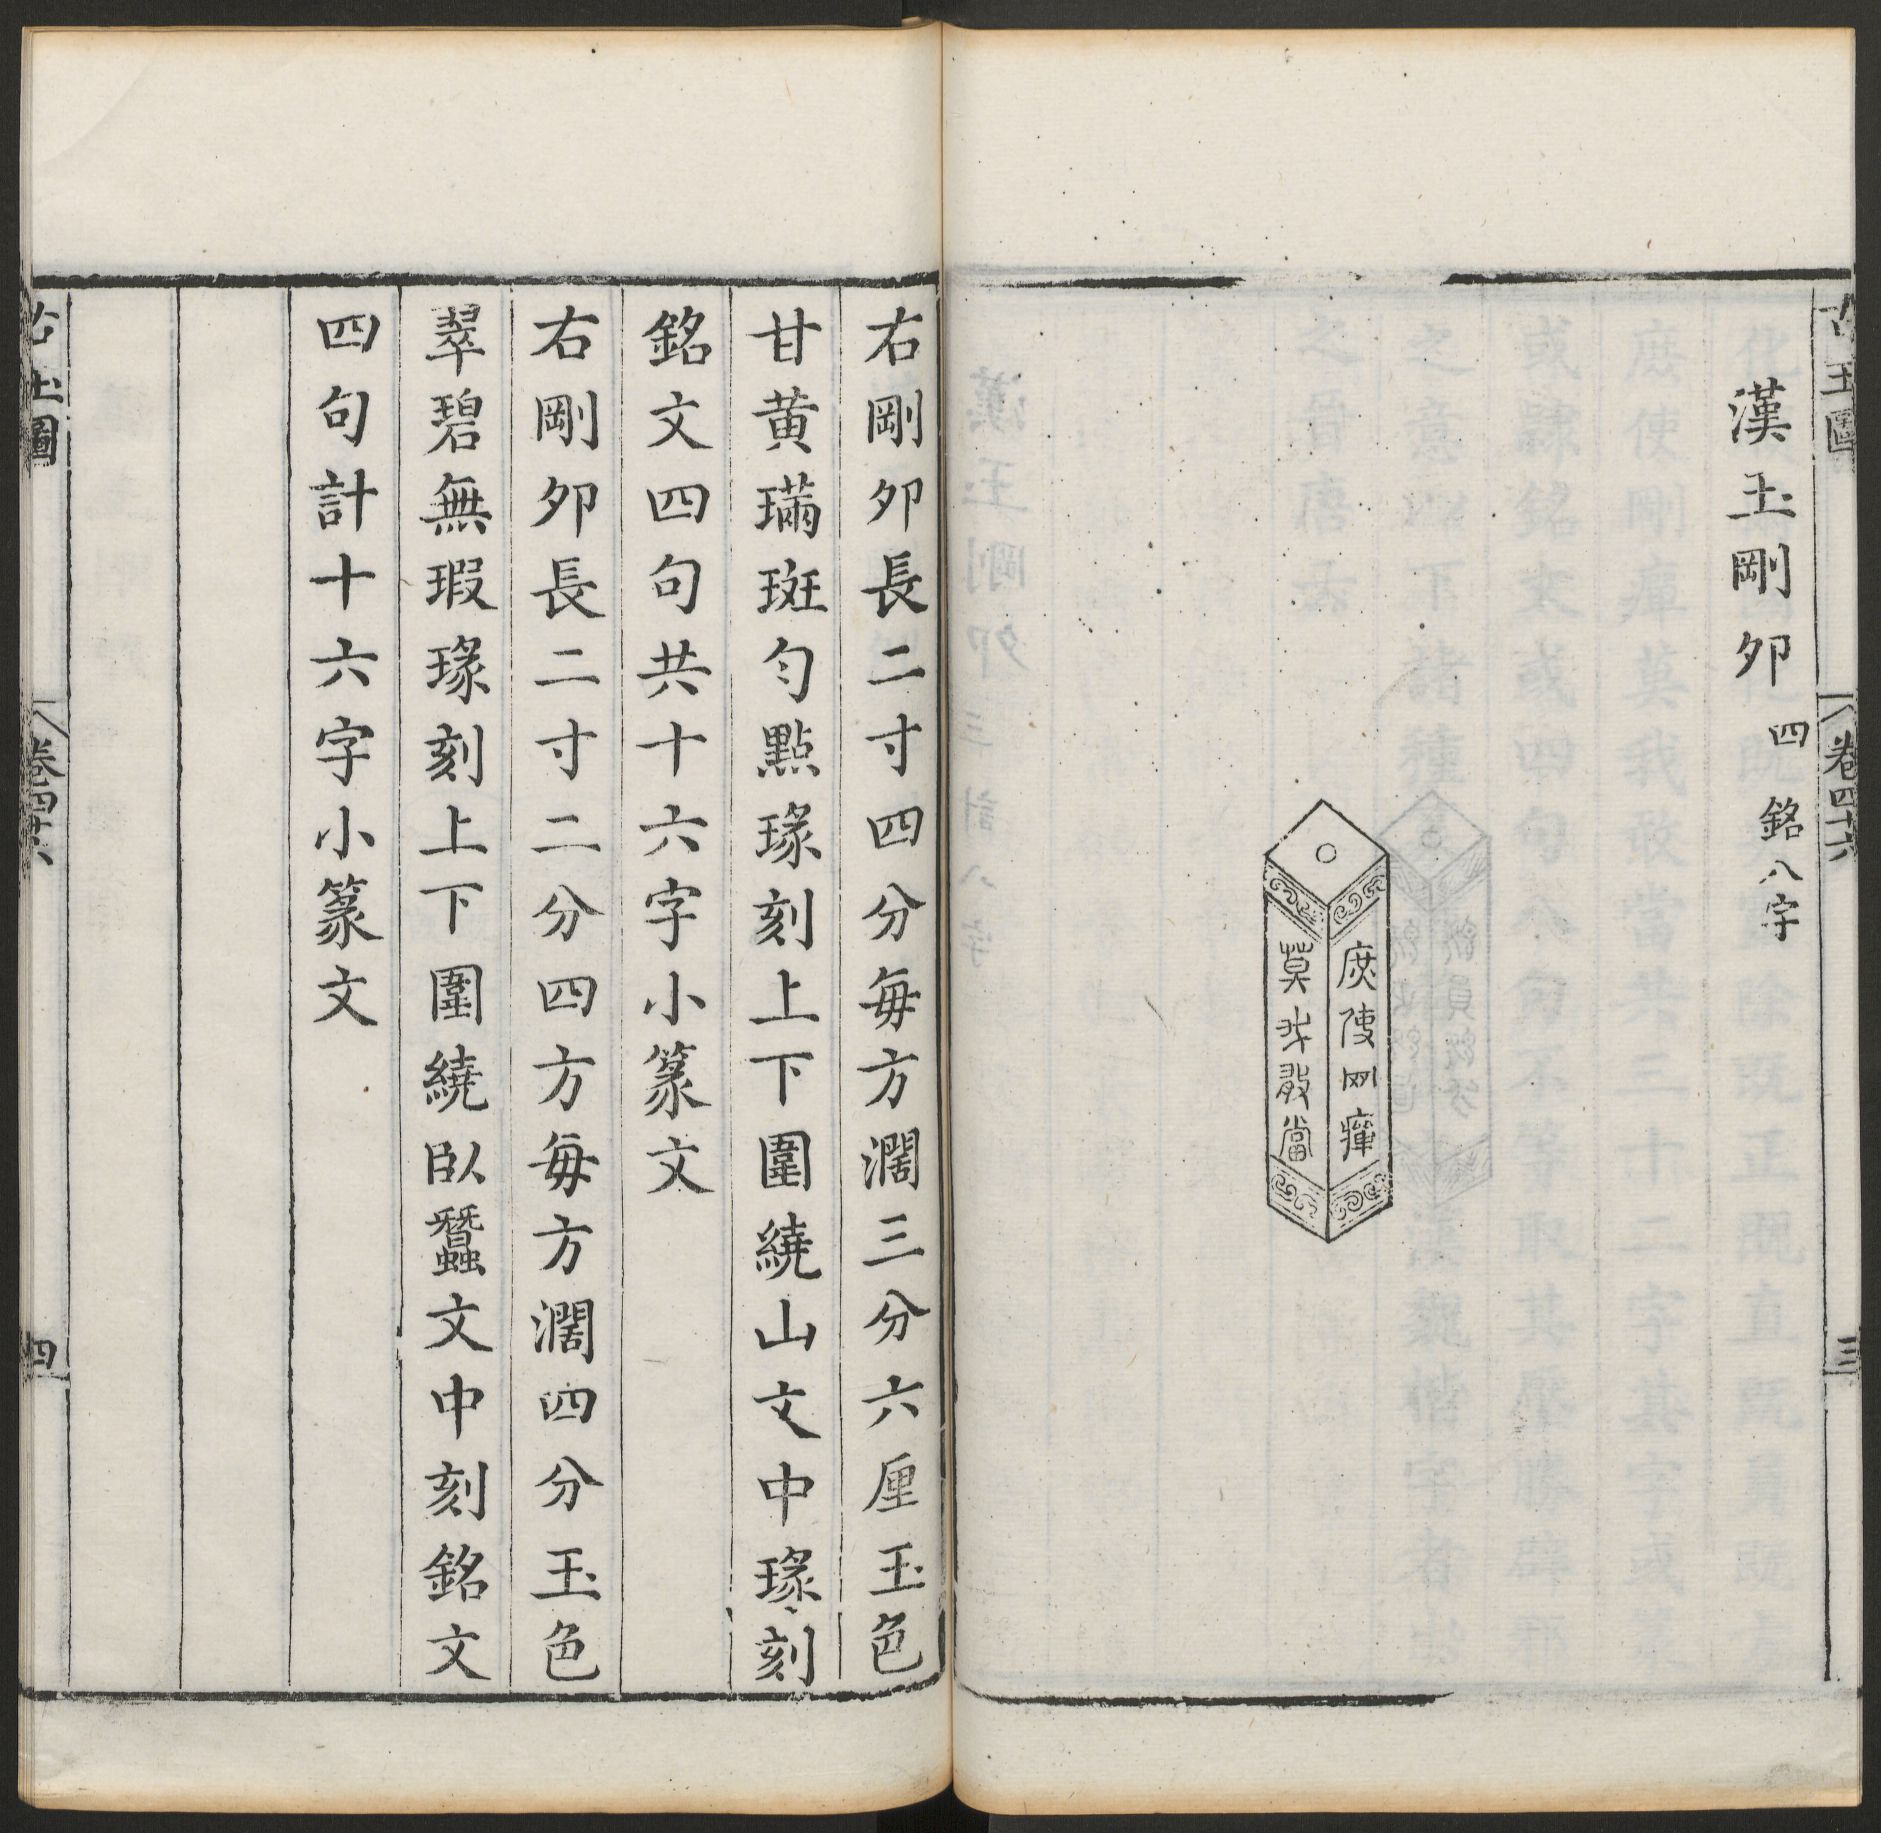 古玉圖
卷四十六
三
漢玉剛夘四 銘八字
庶使罡癉
莫我敢當
右剛夘長二寸四分每方濶三分六厘玉色
甘黄璊斑勻點瑑刻上下圍繞山文中瑑刻
銘文四句共十六字小篆文
右剛夘長二寸二分四方每方濶四分玉色
翠碧無瑕瑑刻上下圍繞臥蠶文中刻銘文
四句計十六字小篆文
古玉圖
卷四十六
四